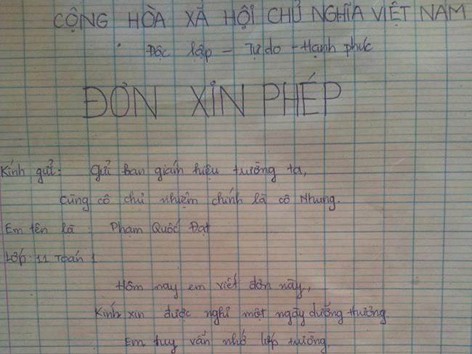 CỘNG HÒA XÃ HỘI CHỦ NGHĨA VIỆT NAM
Độc lập - Tự do - Hạnh phúc
ĐƠN XIN PHÉP
Kính gửi: Gửi ban giám hiệu trường ta,
Cùng cô chủ nhiệm chính là cô Nhung.
Em tên là: Phạm Quốc Đạt
Lớp: 11 Toán 1
Hôm nay em viết đơn này,
Kính xin được nghỉ một ngày dưỡng thương
Em tuy vẫn nhớ lớp trường